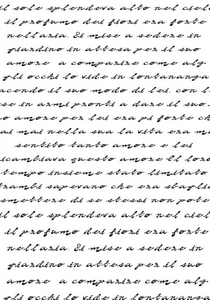 il sole splendeva alto nel ciel
il profumo dei fiori era forte
nell'aria Si mise a sedere in
giardino in attesa per il suo
amore a comparire come alg
gli occhi lo vide in lontananza
acendo il suo modo di lei con l
se in armi pronti a dare il suo
o amore per lei era più forte ch
ai mai nella sua vita era m
sentito tanto amore e lei
icambiava questo amore Il loro
tempo insieme stato limitato
trambi sapevano che era sbaglia
smettere di se stessi non pote
il sole splendeva alto nel ciel
il profumo dei fiori era forte
nell'aria Si mise a sedere in
giardino in attesa per il suo
amore a comparire come alg
gli occhi lo vide in lontananza